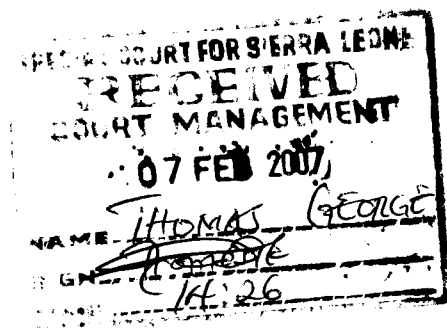 SPECIAL COURT FOR SIERRA LEONE
RECEIVED
COURT MANAGEMENT
07 FEB 2007
NAME THOMAS GEORGE
SIGN
14:26